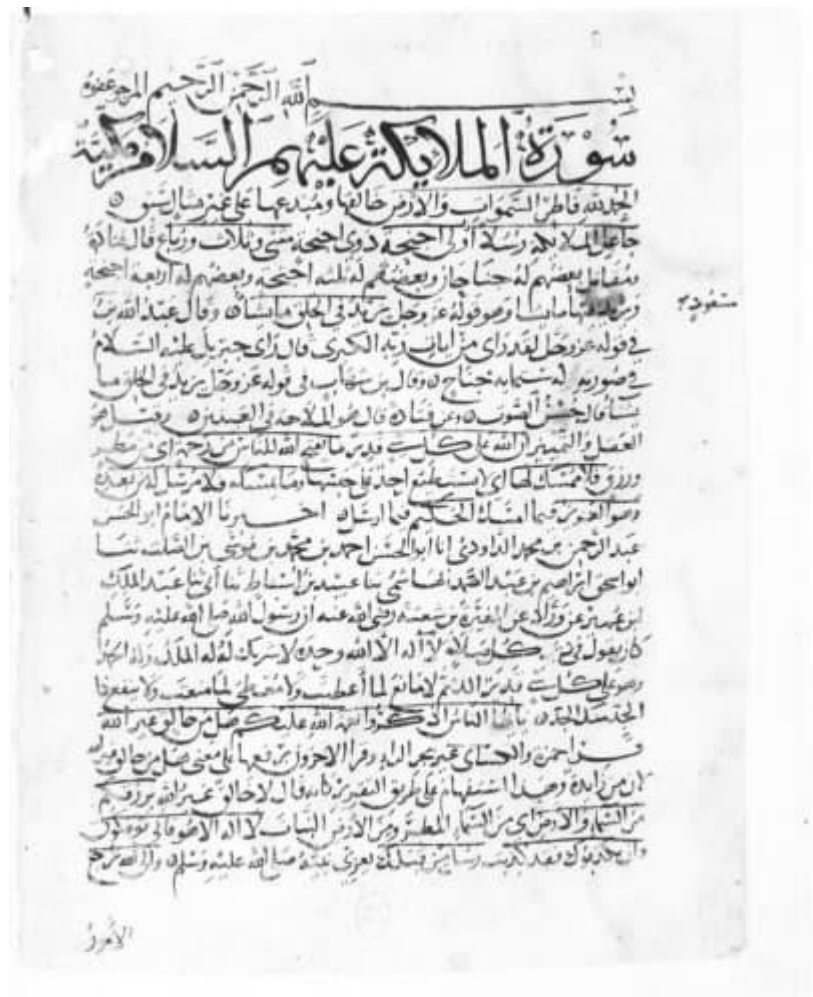 بسم الله الرحمن الرحيم المرجو عفوه
سورة الملايكة عليهم السلام مكية
الحمد لله فاطر السموات والأرض خالقها ومبدعها على غير مثال سبق
جاعل الملايكة رسلا أولي أجنحة ذوي أجنحة مثنى وثلاث ورباع قال قتادة
ومقاتل بعضهم له جناحان وبعضهم له ثلثة أجنحة وبعضهم له أربعة أجنحة
ويزيد فيها ما يشا وهو قوله عز وجل يزيد في الخلق ما يشآ وقال عبد الله بن
مسعود
في قوله عز وجل لقد رأى من آيات ربه الكبرى قال رأى جبريل عليه السلام
في صورته له ستماية جناح وقال بن شهاب في قوله عز وجل يزيد في الخلق ما
يشآ قال حسن الصوت وعن قتادة قال هو الملاحة في العينين وقيل هو
العقل والتمييز إن الله على كل شيء قدير ما يفتح الله للناس من رحمة أي من مطر
ورزق فلا ممسك لها أي لا يستطيع أحد على حبسها وما يمسك فلا مرسل له من بعده
وهو العزيز فيما أمسك الحكيم فيما أرسل أخبرنا الإمام أبو الحسن
عبد الرحمن بن محمد الداودي أنا أبو الحسن أحمد بن محمد بن موسى بن الصلت ثنا
أبو اسحق إبراهيم بن عبد الصمد الهاشمي ثنا عبيد بن أسباط ثنا أبي ثنا عبد الملك
ابن عمير عن وراد عن المغيرة بن شعبة رضي الله عنه أن رسول الله صلى الله عليه وسلم
كان يقول في دبر كل صلاة لا آله الا الله وحده لا شريك له له الملك وله الحمد
وهو على كل شيء قدير اللهم لا مانع لما أعطيت ولا معطي لما منعت ولا ينفع ذا
الجد منك الجد يا أيها الناس اذكروا نعمة الله عليكم هل من خالق غير الله
قرأ حمزة والكسائي غير بجر الراء وقرأ الآخرون برفعها على معنى هل خالق غير الله
لأن من زايدة وهذا استفهام على طريق التقرير كأنه قال لا خالق غير الله يرزقكم
من السماء والأرض أي من السماء المطر ومن الأرض النبات لا اله الا هو فأنى تؤفكون
وإن يكذبوك فقد كذبت رسل من قبلك يعزي نبيه صلى الله عليه وسلم وإلى الله ترجع
الأمور